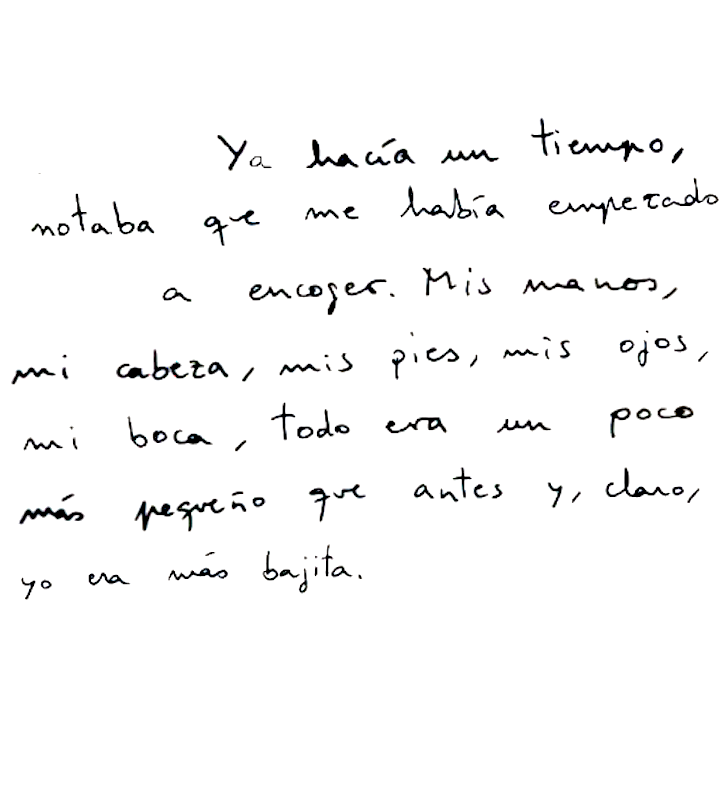 Ya hacía un tiempo,
notaba que me había empezado
a encoger. Mis manos,
mi cabeza, mis pies, mis ojos,
mi boca, todo era un poco
más pequeño que antes y, claro,
yo era más bajita.